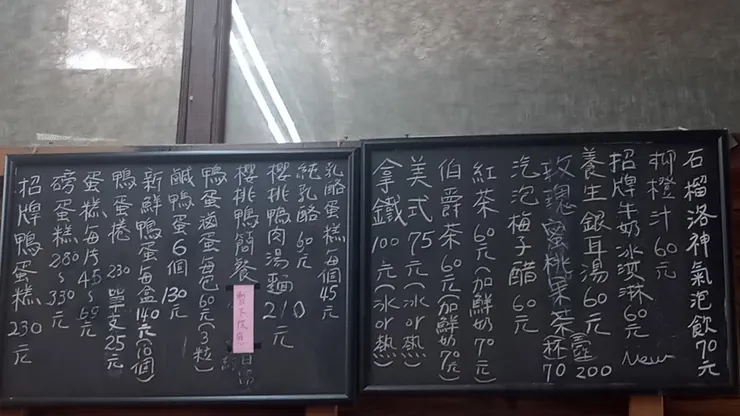 石榴洛神氣泡飲70元
柳橙汁60元
招牌牛奶冰淇淋60元 New
養生銀耳湯60元
玫瑰蜜桃果茶杯70壺200
汽泡梅子醋60元
紅茶60元(加鮮奶70元)
伯爵茶60元(加鮮奶70元)
美式75元(冰or熱)
拿鐵100元(冰or熱)
乳酪蛋糕每個45元
純乳酪60元
櫻桃鴨肉湯麵210元
櫻桃鴨簡餐
鴨蛋滷蛋每包60元(3粒)
鹹鴨蛋6個130元
新鮮鴨蛋每盒140元(10個)
鴨蛋捲230單支25元
蛋糕每片45~65元
磅蛋糕280~330元
招牌鴨蛋糕230元